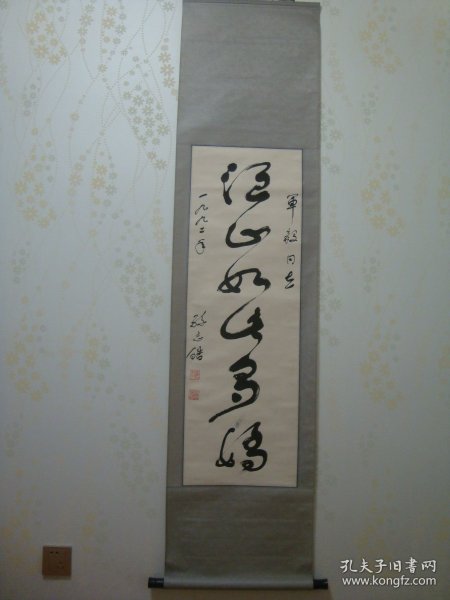 軍毅同志
江山如此多嬌
一九九二年
孫志皓
孔夫子旧书网
www.kongfz.com